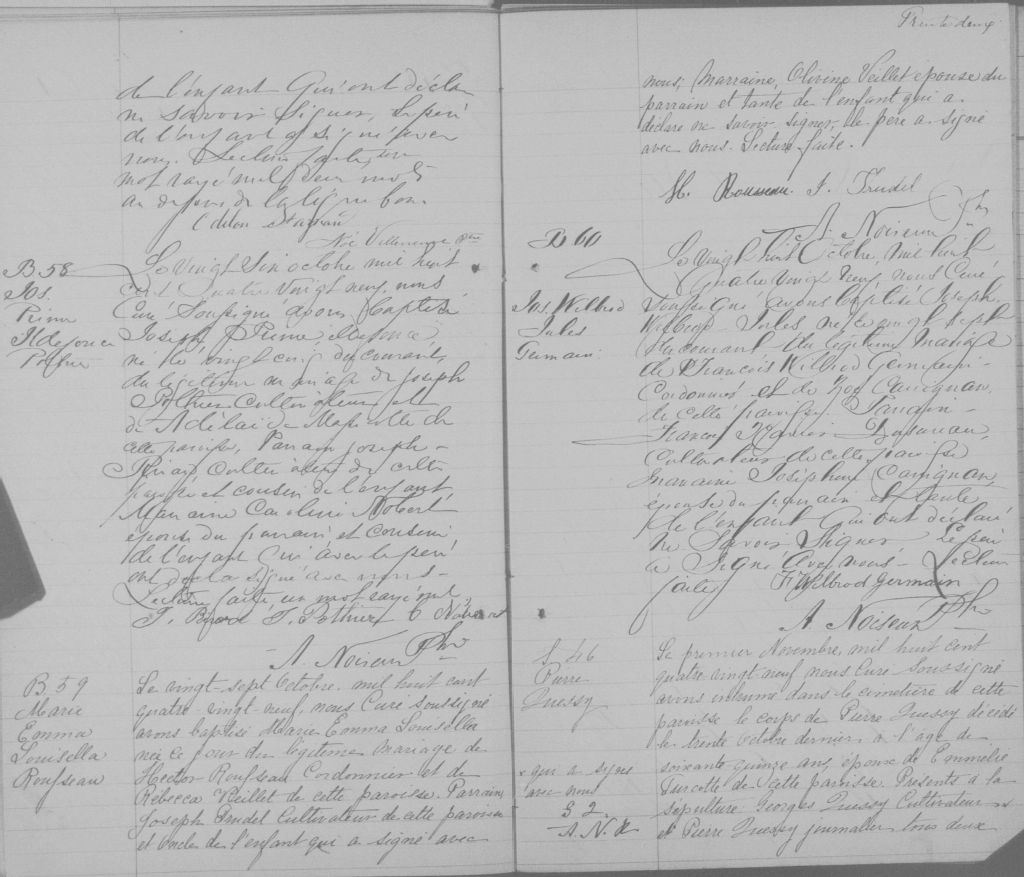 de l'enfant qui ont déclaré
ne savoir signer, le père
de l'enfant a signé avec
nous. Lecture faite, un
mot rayé nul, deux mots
au dessus de la ligne bon.
Noé Villeneuve ptre
B. 58
Jos.
Prime
Ildefonce
Pothier
Le vingt six octobre mil huit
cent quatre vingt neuf, nous
Curé soussigné avons baptisé
Joseph Prime, Ildefonce,
né le vingt cinq du courant,
du légitime mariage de Joseph
Pothier Cultivateur et
de Adélaide Masicotte de
cette paroisse, Parrain Joseph
Cultivateur de cette
paroisse et cousin de l'enfant,
Marraine Caroline
épouse du parrain et cousine
de l'enfant qui avec le père
ont signé avec nous.
Lecture faite, un mot rayé nul.
J. Pothier
A. Noiseux Ptre
B. 59
Marie
Emma
Louisella
Rousseau
Le vingt-sept Octobre, mil huit cent
quatre-vingt-neuf, nous Curé soussigné
avons baptisé Marie Emma Louisella
née ce jour du légitime mariage de
Hector Rousseau Cordonnier et de
Rebecca Veillet de cette paroisse. Parrain
Joseph Trudel Cultivateur de cette paroisse
et oncle de l'enfant qui a signé avec
Trente deux
nous; Marraine, Olivine Veillet epouse du
parrain et tante de l'enfant qui a
déclaré ne savoir signer, le père a signé
avec nous. Lecture faite.
H. Rousseau. J. Trudel
A. Noiseux Ptre
B 60
Jos. Wilbrod
Jules
Germain
Le vingt huit Octobre, mil huit
quatre vingt neuf, nous Curé
soussigné avons baptisé Joseph
Wilbrod Jules né le vingt sept
du courant du légitime mariage
de François Wilbrod Germain
Cordonnier et de
de cette paroisse. Parrain
François Xavier
Cultivateur de cette paroisse
Marraine Joséphine
épouse du parrain et tante
de l'enfant qui ont déclaré
ne savoir signer. Le père
a signé avec nous. Lecture
faite. F. Wilbrod Germain
A. Noiseux Ptre
S. 46
Pierre
Quessy
Le premier Novembre, mil huit cent
quatre-vingt-neuf nous Curé soussigné
avons inhumé dans le cimetière de cette
paroisse le corps de Pierre Quessy décédé
le trente Octobre dernier à l'age de
soixante quinze ans, époux de Emmélie
Turcotte de cette paroisse. Présents à la
sépulture Georges Quessy Cultivateur x
et Pierre Quessy journalier tous deux
x qui a signé
avec nous
A. N. Ptre